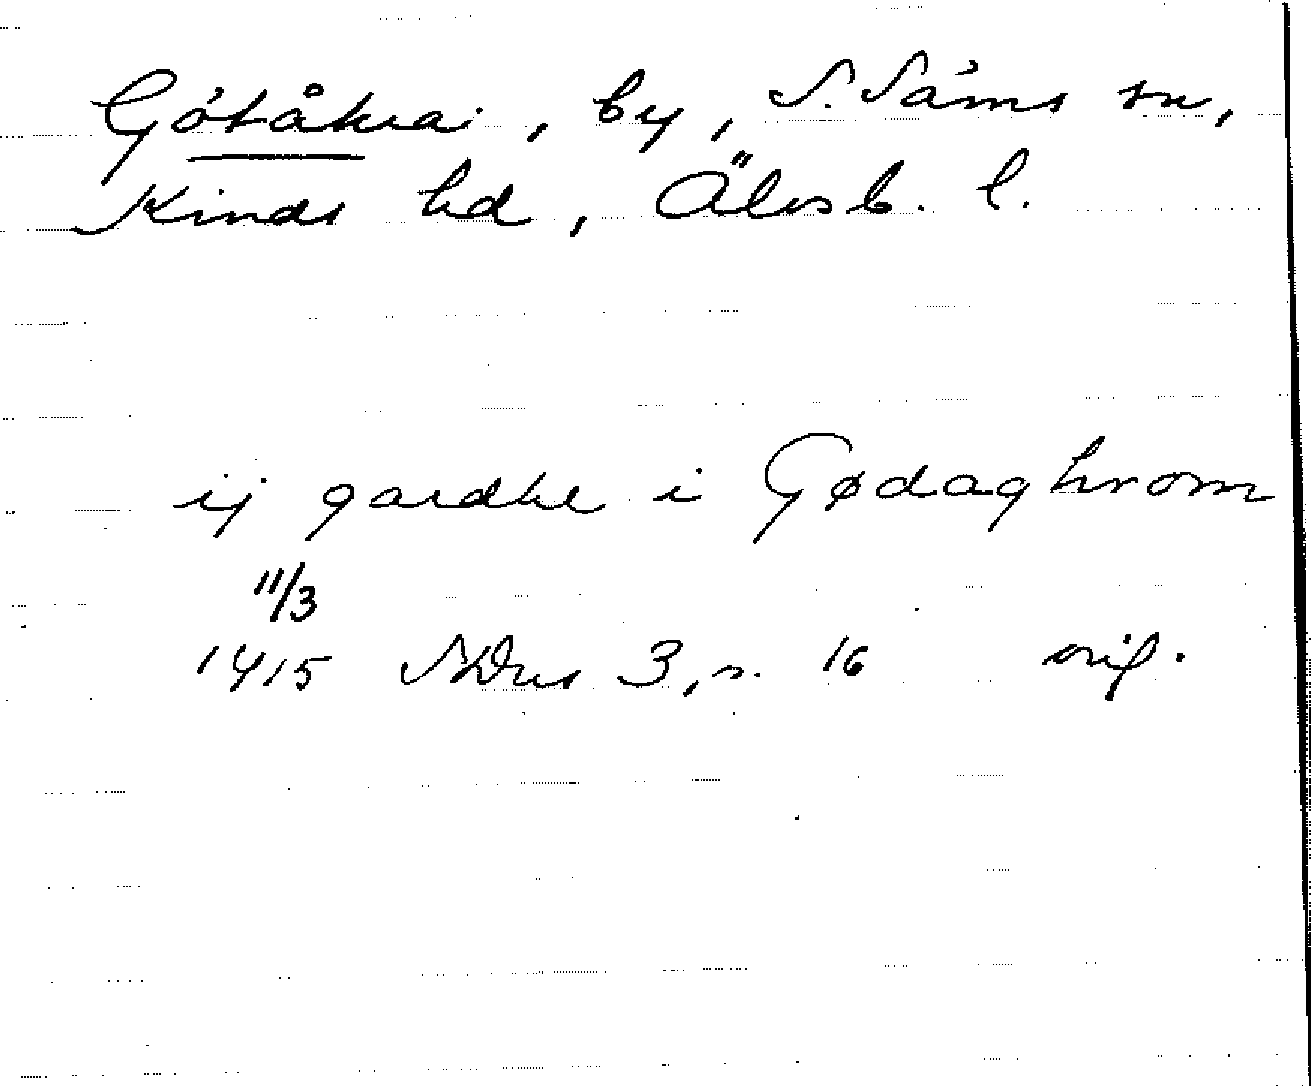 Götåkra, by, S. Säms sn,
Kinds hd, Älvsb. l.
ij gardhe i Gødaghrom
11/3
1415 SDns 3, s. 16 orig.